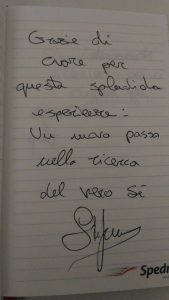 Grazie di
cuore per
questa splendida
esperienza:
Un nuovo passo
nella ricerca
del vero Sé
Spedr